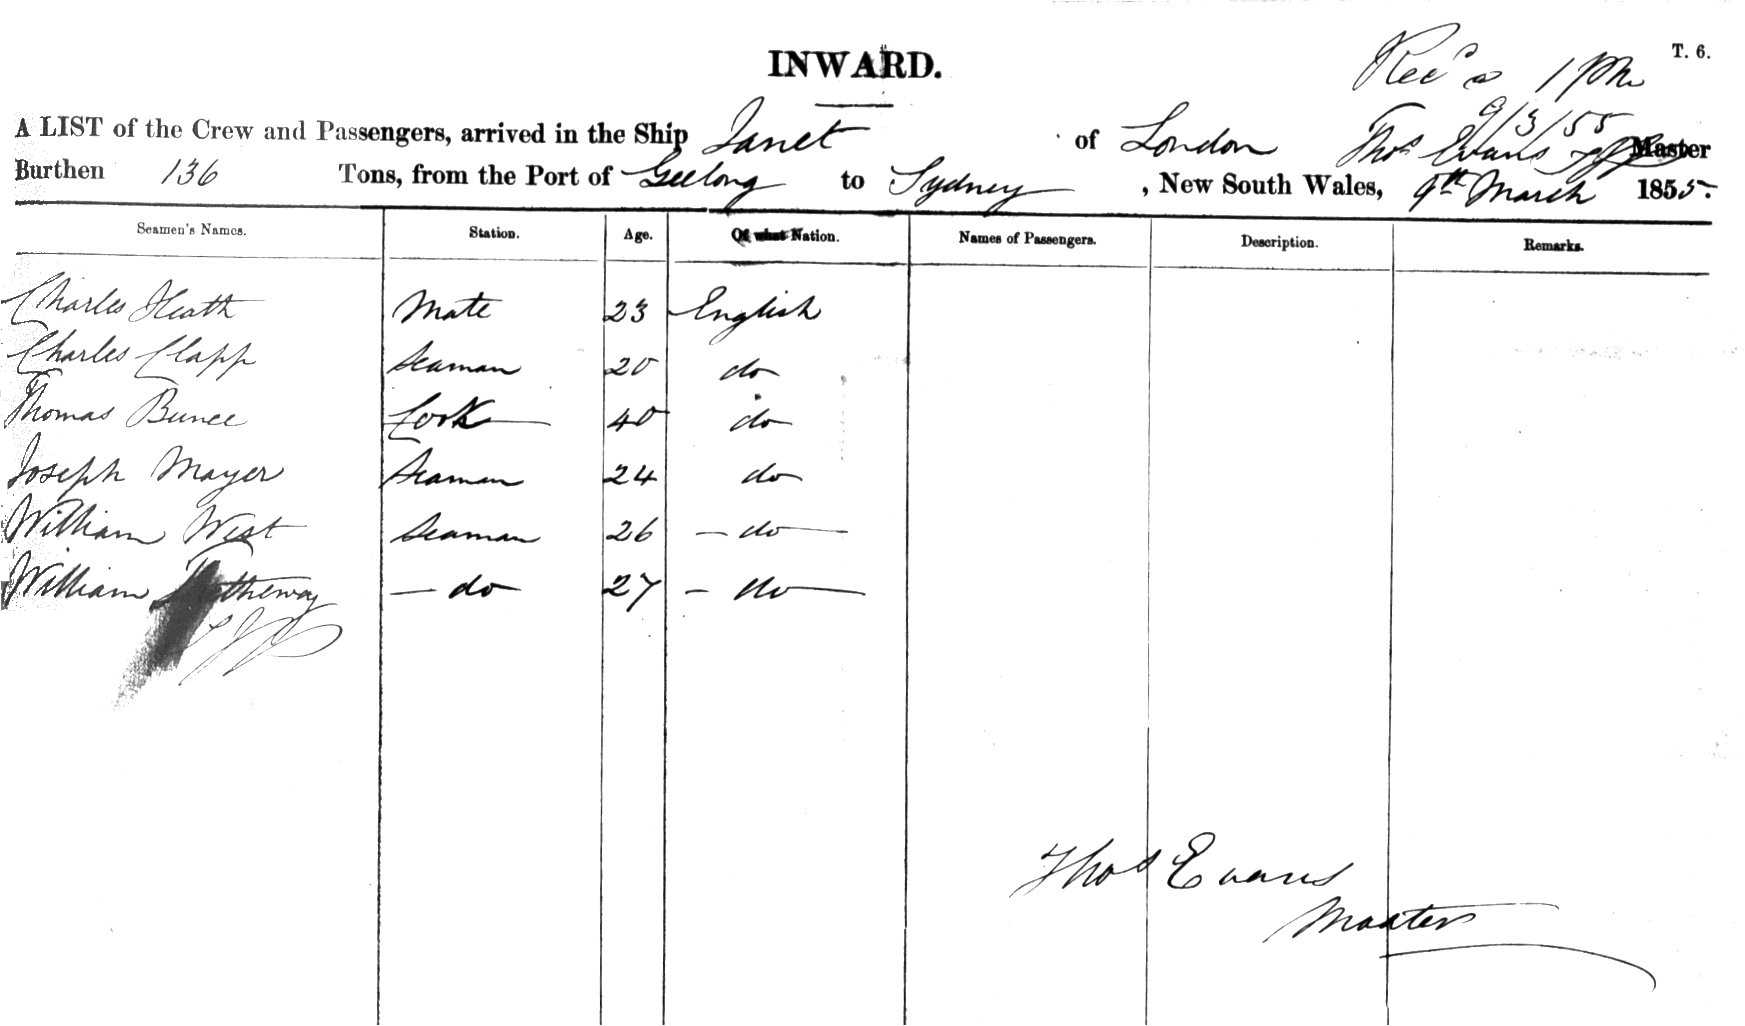 INWARD.
T. 6.
Rec'd 1 pm
9/3/55
A LIST of the Crew and Passengers, arrived in the Ship Janet of London Thos Evans Master
Burthen 136 Tons, from the Port of Geelong to Sydney, New South Wales, 9th March 1855.
Seamen's Names. Station. Age. Of what Nation. Names of Passengers. Description. Remarks.
Charles Heath Mate 23 English
Charles Clapp Seaman 20 do
Thomas Bunce Cook 40 do
Joseph Mayer Seaman 24 do
William West Seaman 26 - do -
William - do 27 - do -
Thos Evans
Master